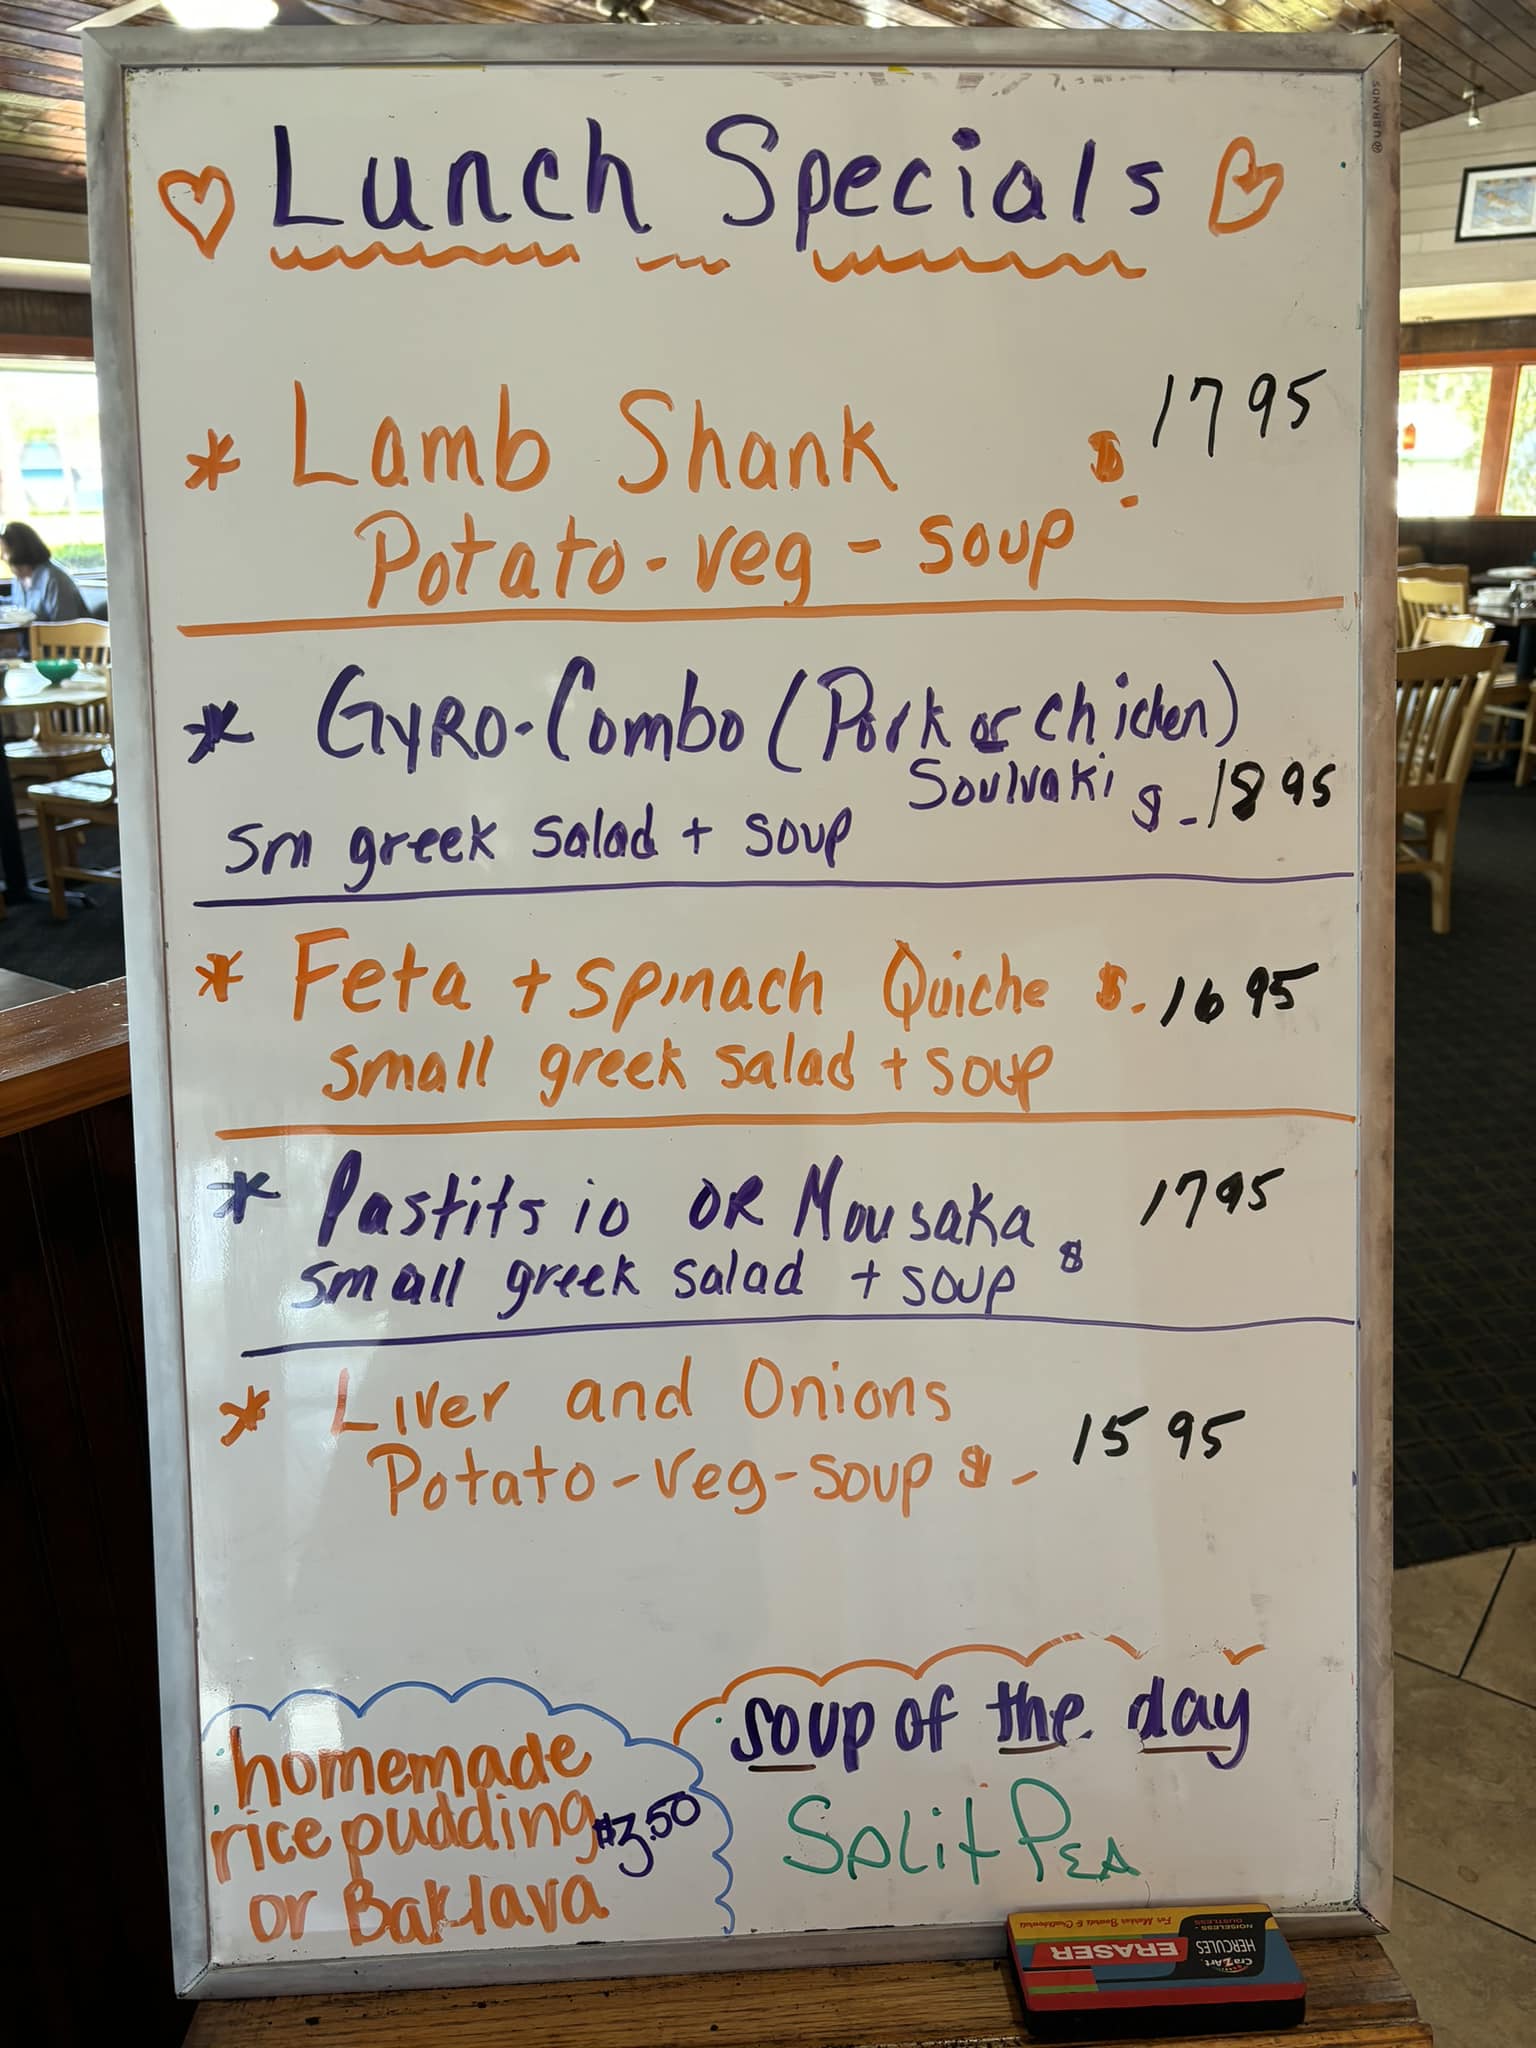 U BRANDS
Lunch Specials
* Lamb Shank $ 17 95
Potato-veg-soup
* Gyro-Combo (Pork or Chicken)
Soulvaki $ - 18 95
sm greek salad + soup
* Feta + Spinach Quiche $ - 16 95
small greek salad + soup
* Pastitsio OR Mousaka 17 95
small greek salad + soup $
* Liver and Onions
Potato-veg-soup $ - 15 95
homemade
rice pudding $3.50
or Baklava
soup of the day
Split Pea
For Marker Boards & Chalkboards
NOISELESS - DUSTLESS
CraZArt
HERCULES
ERASER